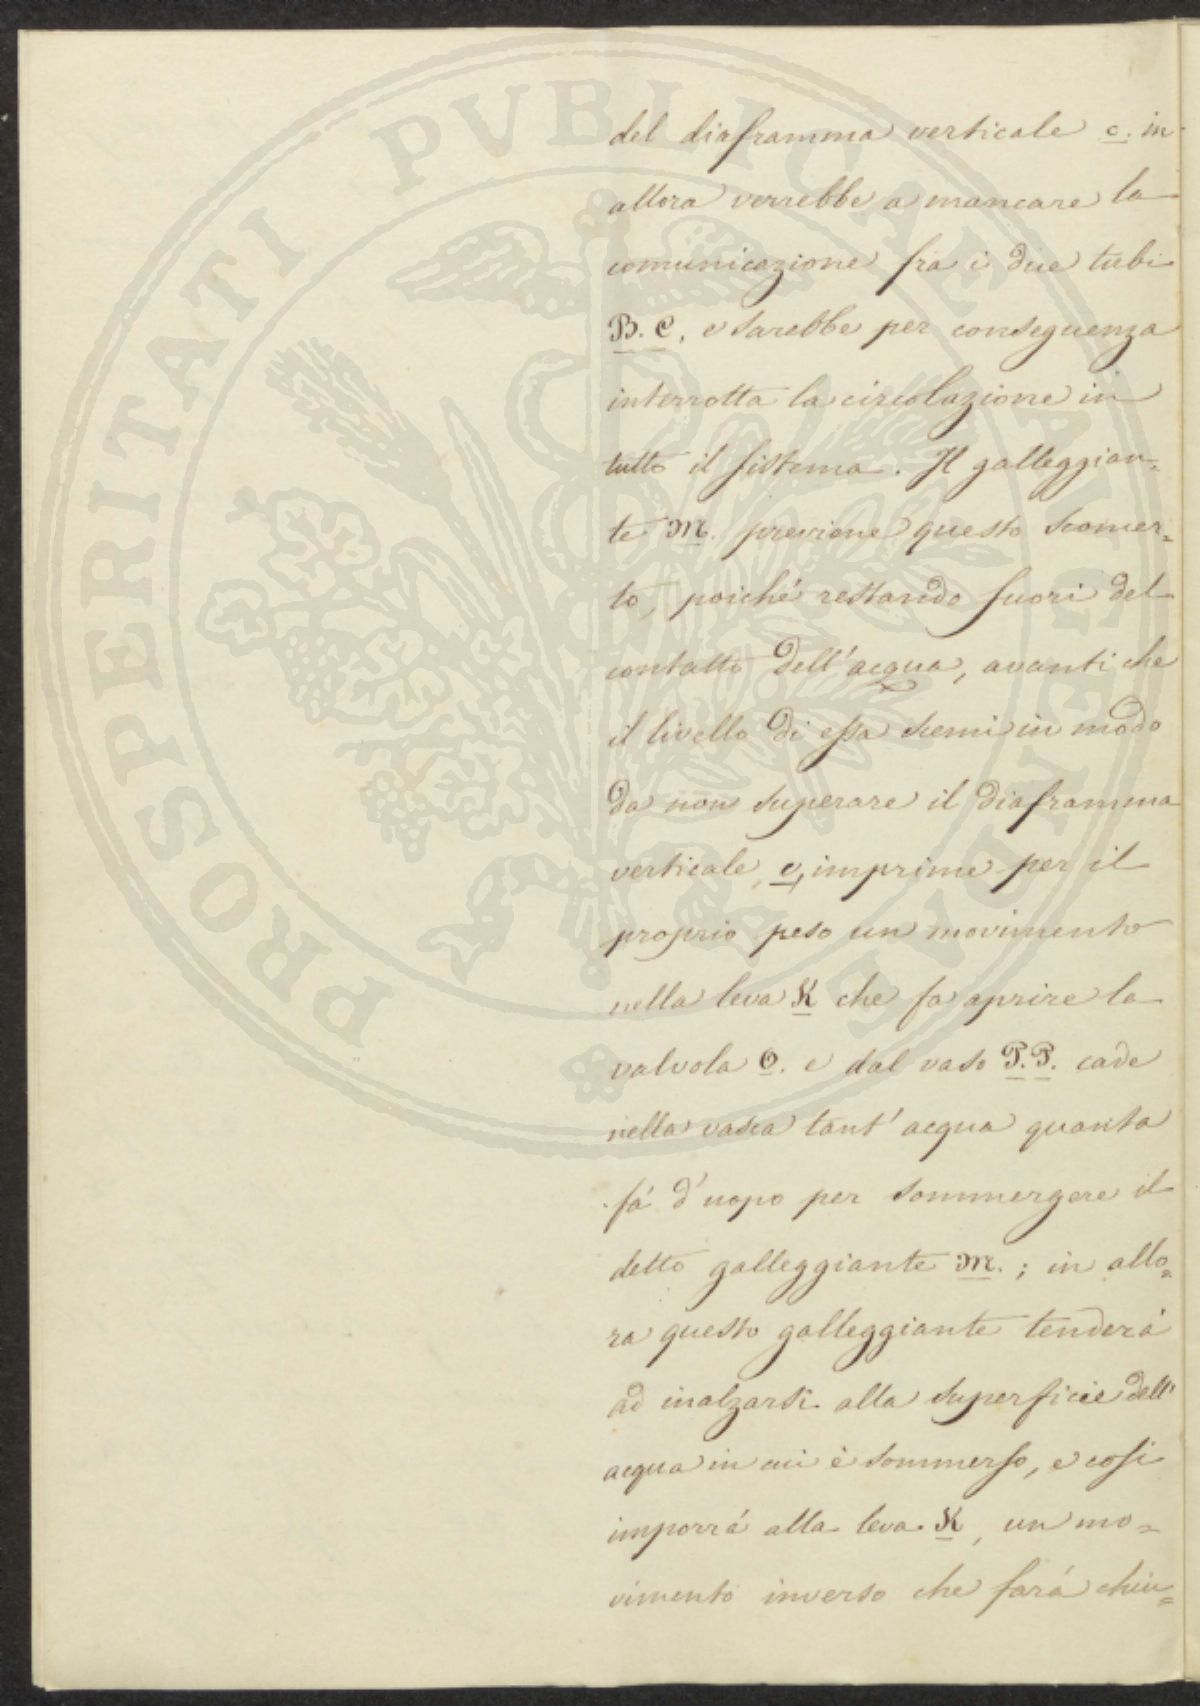 del diaframma verticale c. in
allora verrebbe a mancare la
comunicazione fra i due tubi
B. C, e sarebbe per conseguenza
interrotta la circolazione in
tutto il sistema. Il galleggian=
te M. previene questo sconcer=
to, poiché restando fuori del
contatto dell'acqua, avanti che
il livello di essa scemi in modo
da non superare il diaframma
verticale, c, imprime per il
proprio peso un movimento
nella leva K che fa aprire la
valvola O. e dal vaso P.P. cade
nella vasca tant'acqua quanta
fá d'uopo per sommergere il
detto galleggiante M.; in allo=
ra questo galleggiante tenderá
ad inalzarsi alla superficie dell'
acqua in cui è sommerso, e cosi
imporrá alla leva K, un mo=
vimento inverso che fará chiu=
PROSPERITATI PVBLICAE AVGENDAE